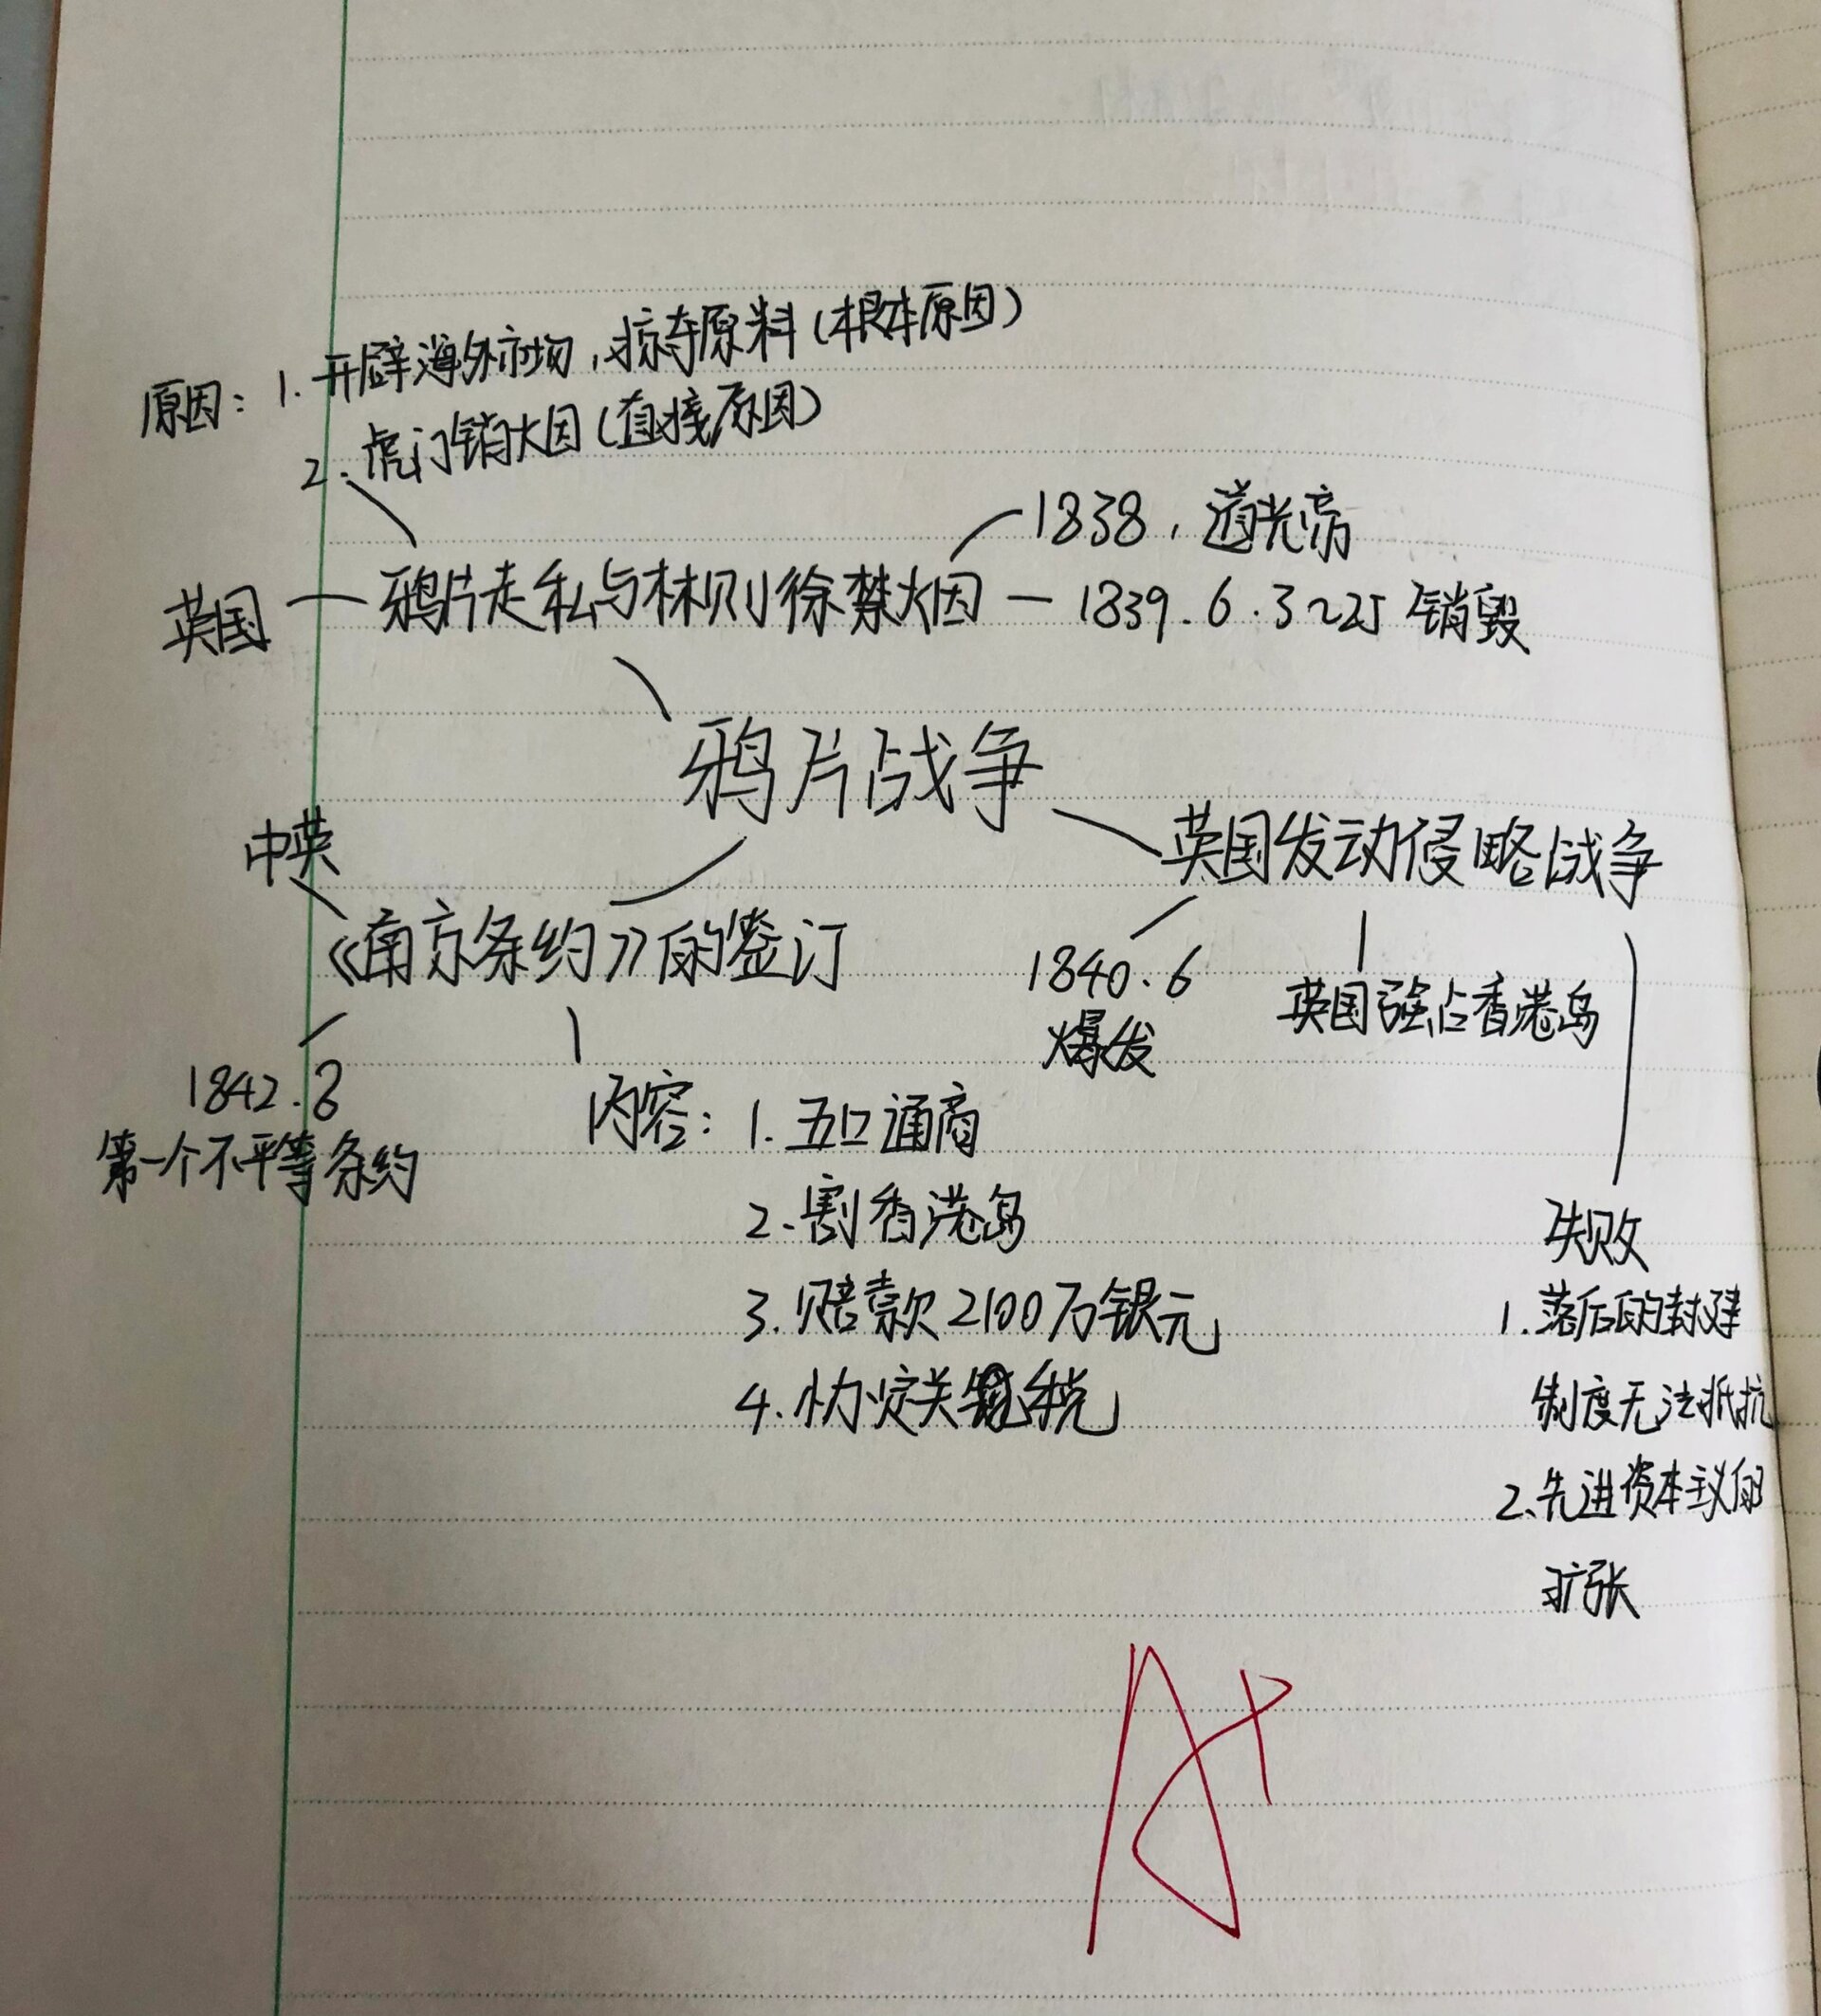 原因：1.开辟海外市场，掠夺原料（根本原因）
2.虎门销烟（直接原因）
1838，道光帝
英国 鸦片走私与林则徐禁烟 1839.6.3~25 销毁
鸦片战争
中英
英国发动侵略战争
《南京条约》的签订
1840.6
爆发
英国强占香港岛
1842.8
第一个不平等条约
内容：1.五口通商
2.割香港岛
3.赔款2100万银元
4.协定关税
失败
1.落后的封建
制度无法抵抗
2.先进资本主义的
扩张
A+